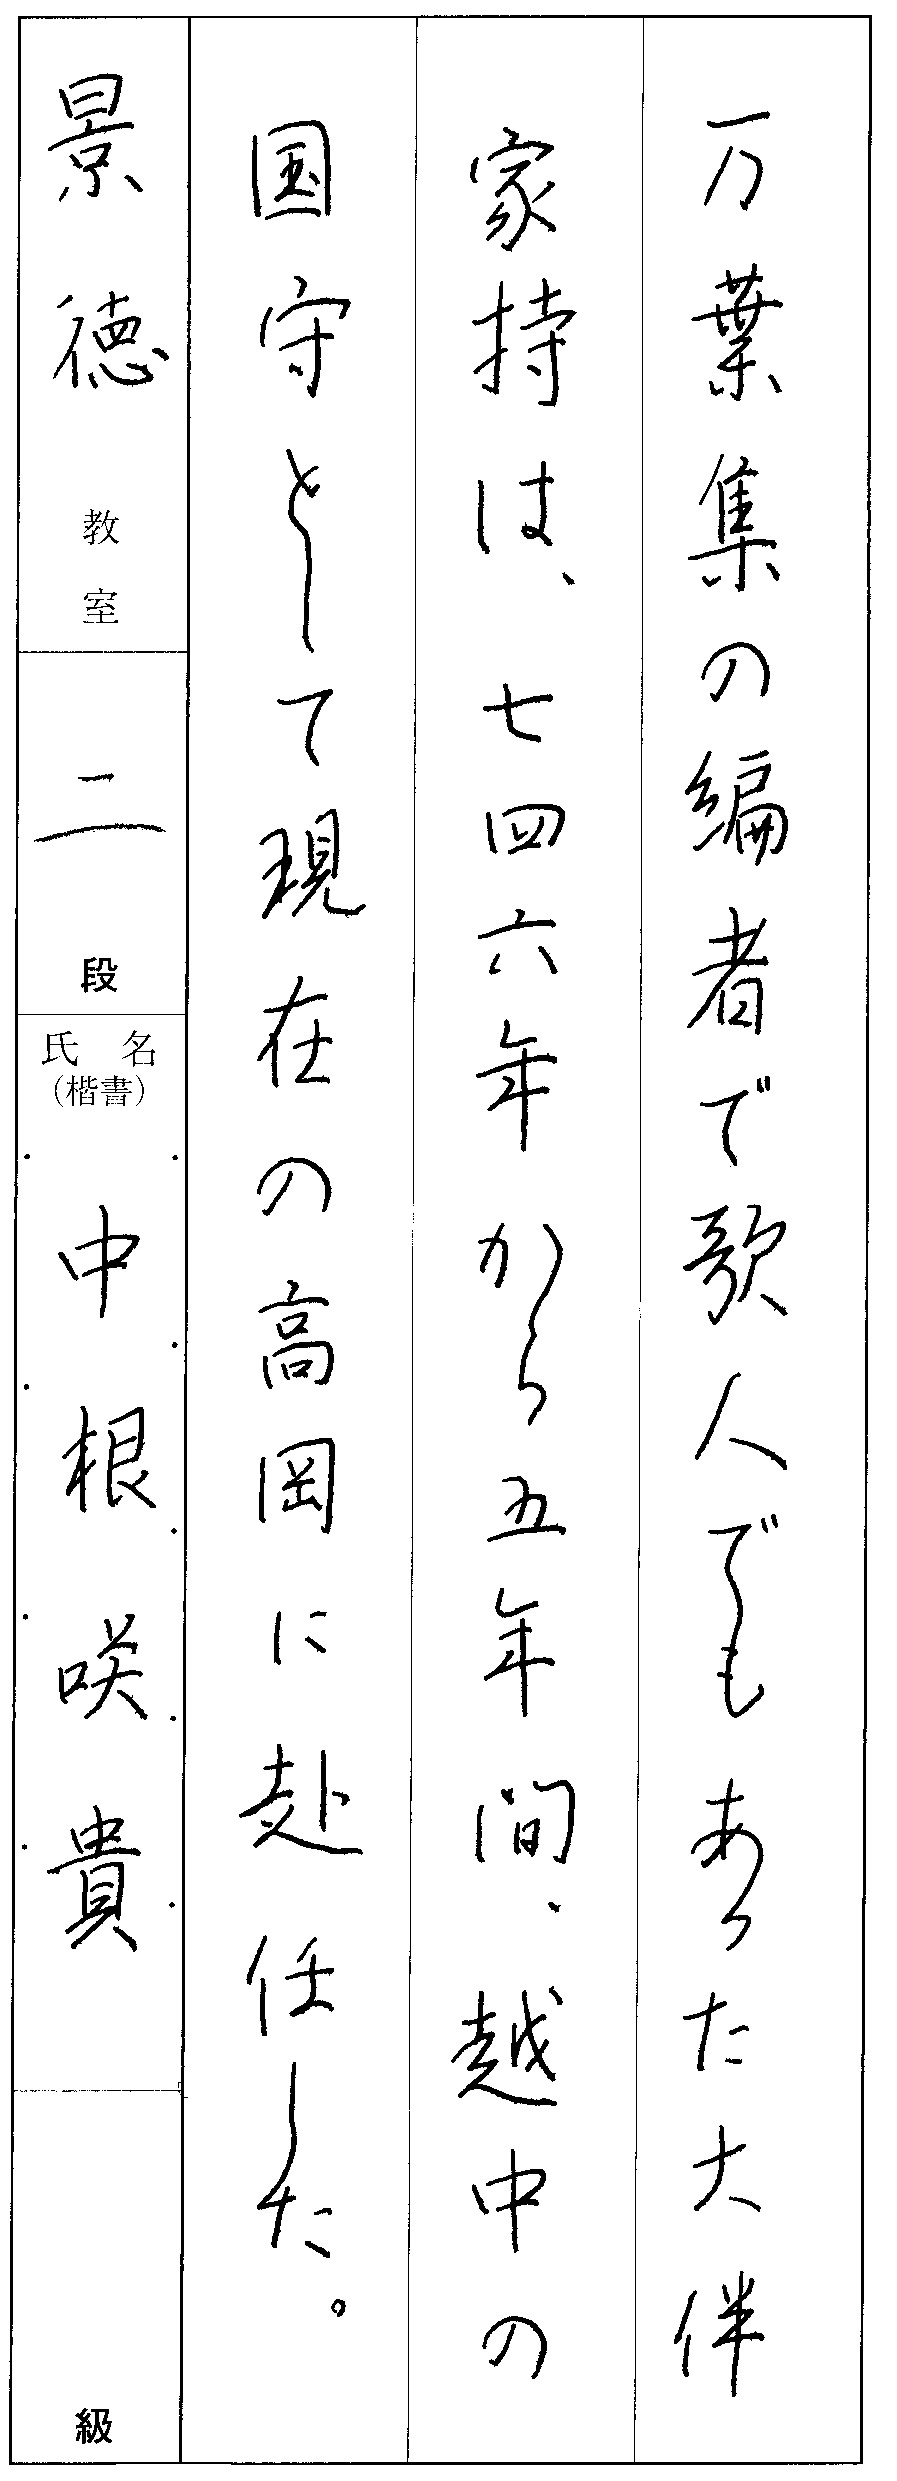 万葉集の編者で歌人でもあった大伴
家持は、七四六年から五年間、越中の
国守として現在の高岡に赴任した。
景徳教室
二段
氏名
(楷書)
中根咲貴
級